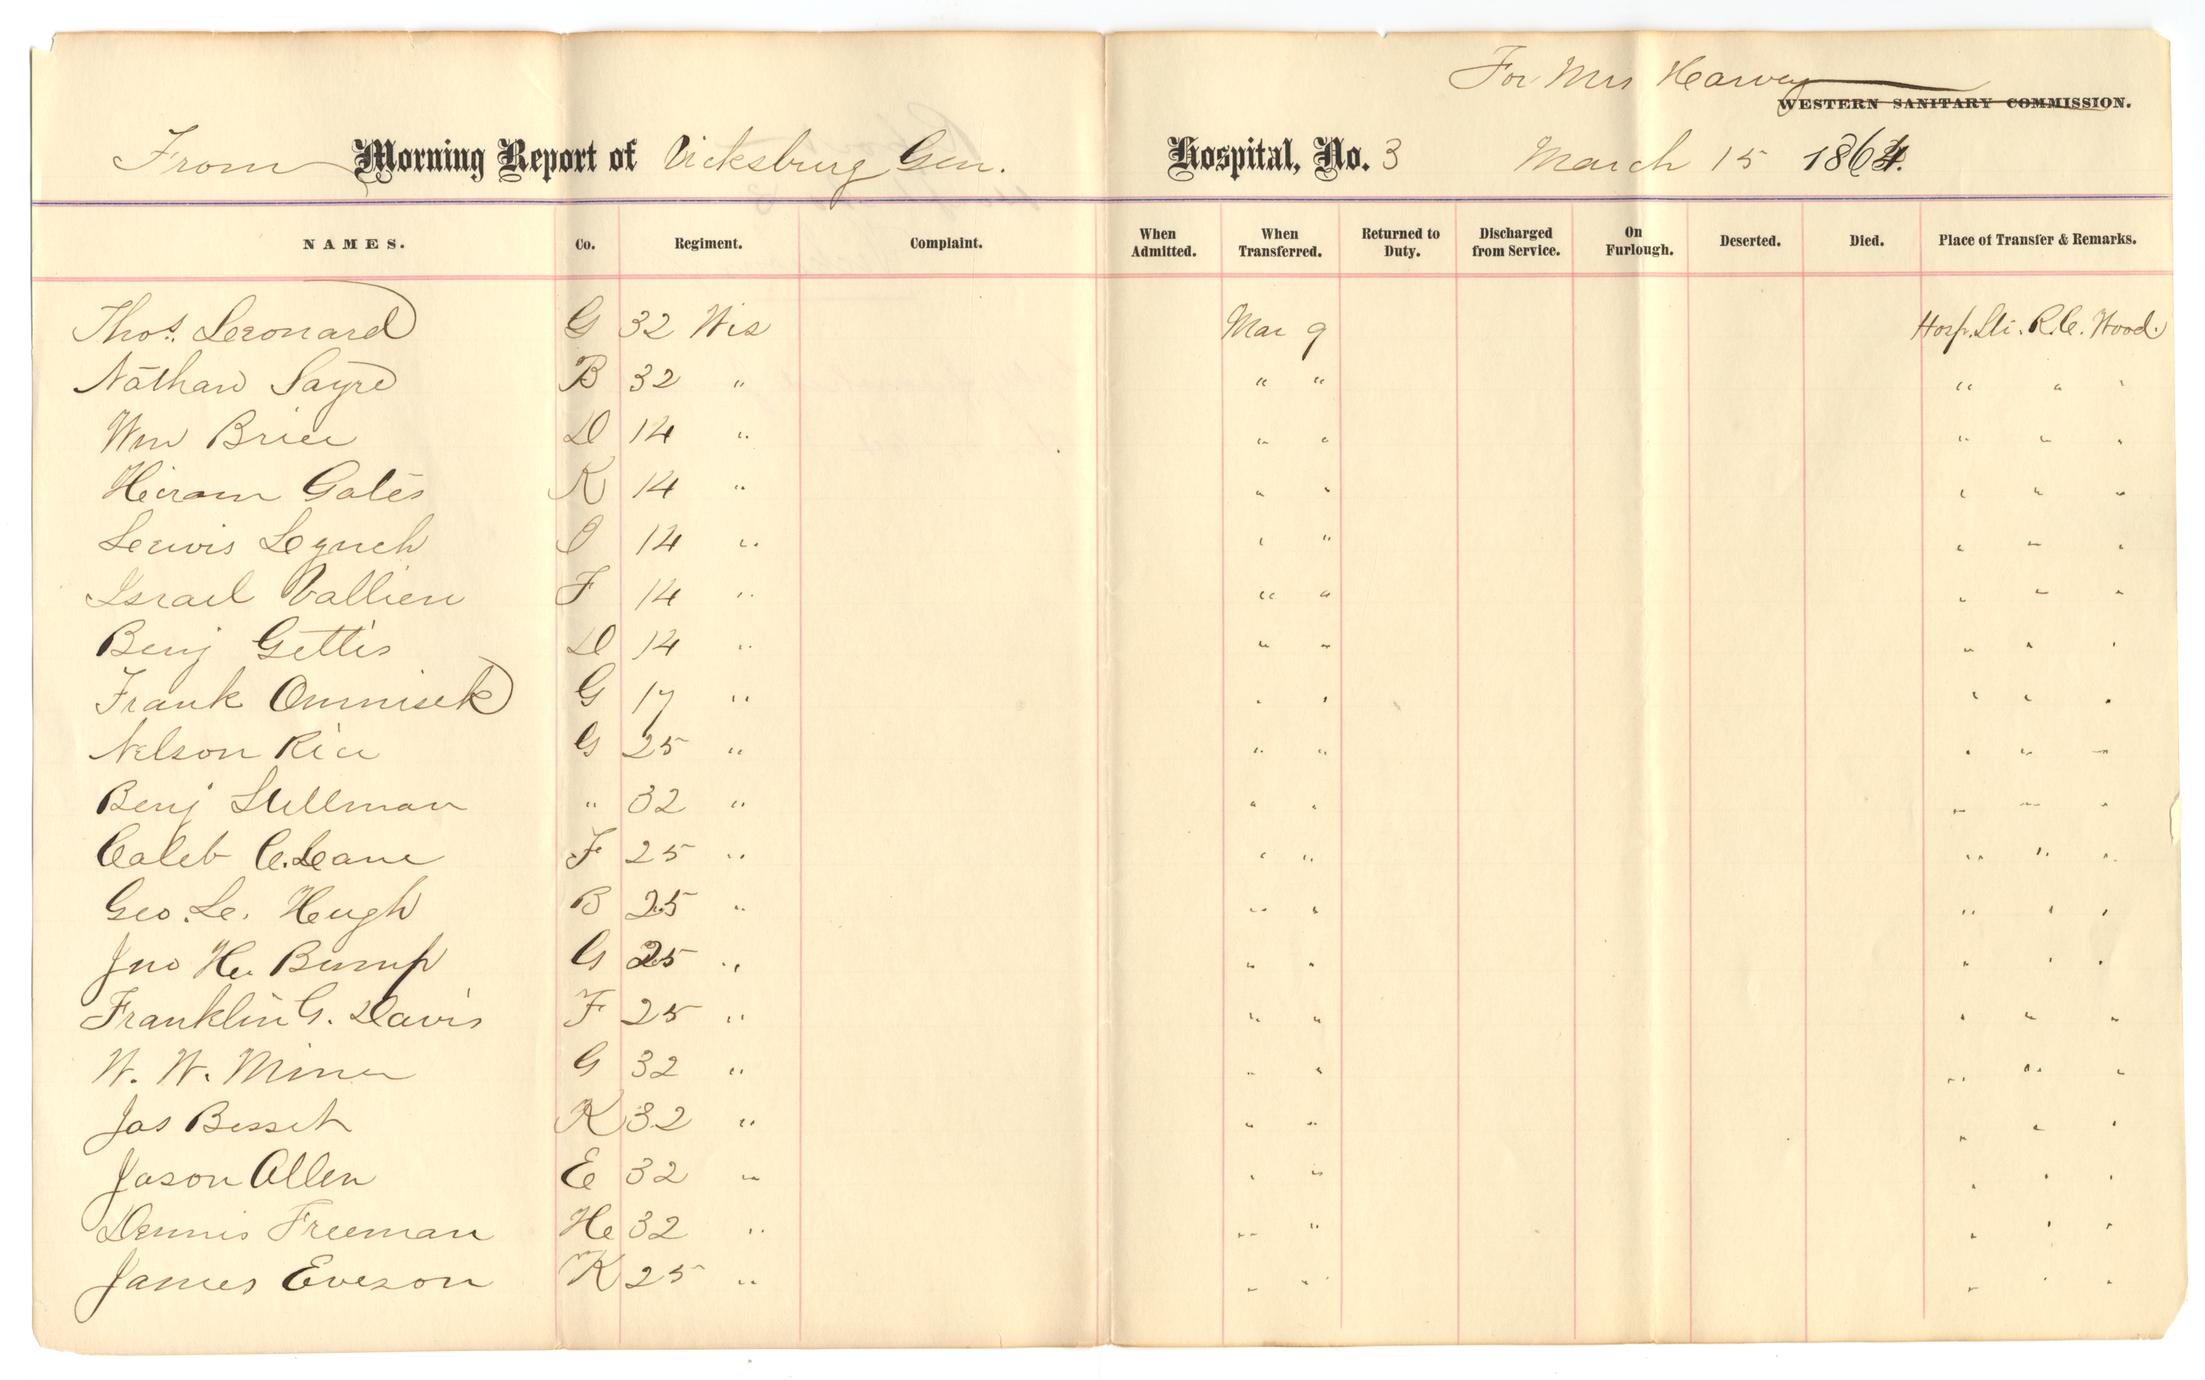 For Mrs Harvey
WESTERN SANITARY COMMISSION.
From Morning Report of Vicksburg Gen. Hospital, No. 3 March 15 1864.
NAMES. Co. Regiment. Complaint. When Admitted. When Transferred. Returned to Duty. Discharged from Service. On Furlough. Deserted. Died. Place of Transfer & Remarks.
Thos. Leonard G 32 Wis Mar 9 Hosp. Str. R.C. Wood.
Nathan Sayre B 32 " " " " " "
Wm Brice D 14 " " " " " "
Hiram Gates K 14 " " " " " "
Lewis Lynch 14 " " " " " "
Israel Vallien F 14 " " " " " "
Benj Gettis D 14 " " " " " "
Frank G 17 " " " " " "
Nelson Rice G 25 " " " " " "
Benj Stillman " 32 " " " " " "
Caleb C. Lane F 25 " " " " " "
Geo. L. Hugh B 25 " " " " " "
Jno H. Bump G 25 " " " " " "
Franklin G. Davis F 25 " " " " " "
W. W. Miner G 32 " " " " " "
Jas Besset K 32 " " " " " "
Jason Allen E 32 " " " " " "
Dennis Freeman H 32 " " " " "
James Eveson K 25 " " " " " "